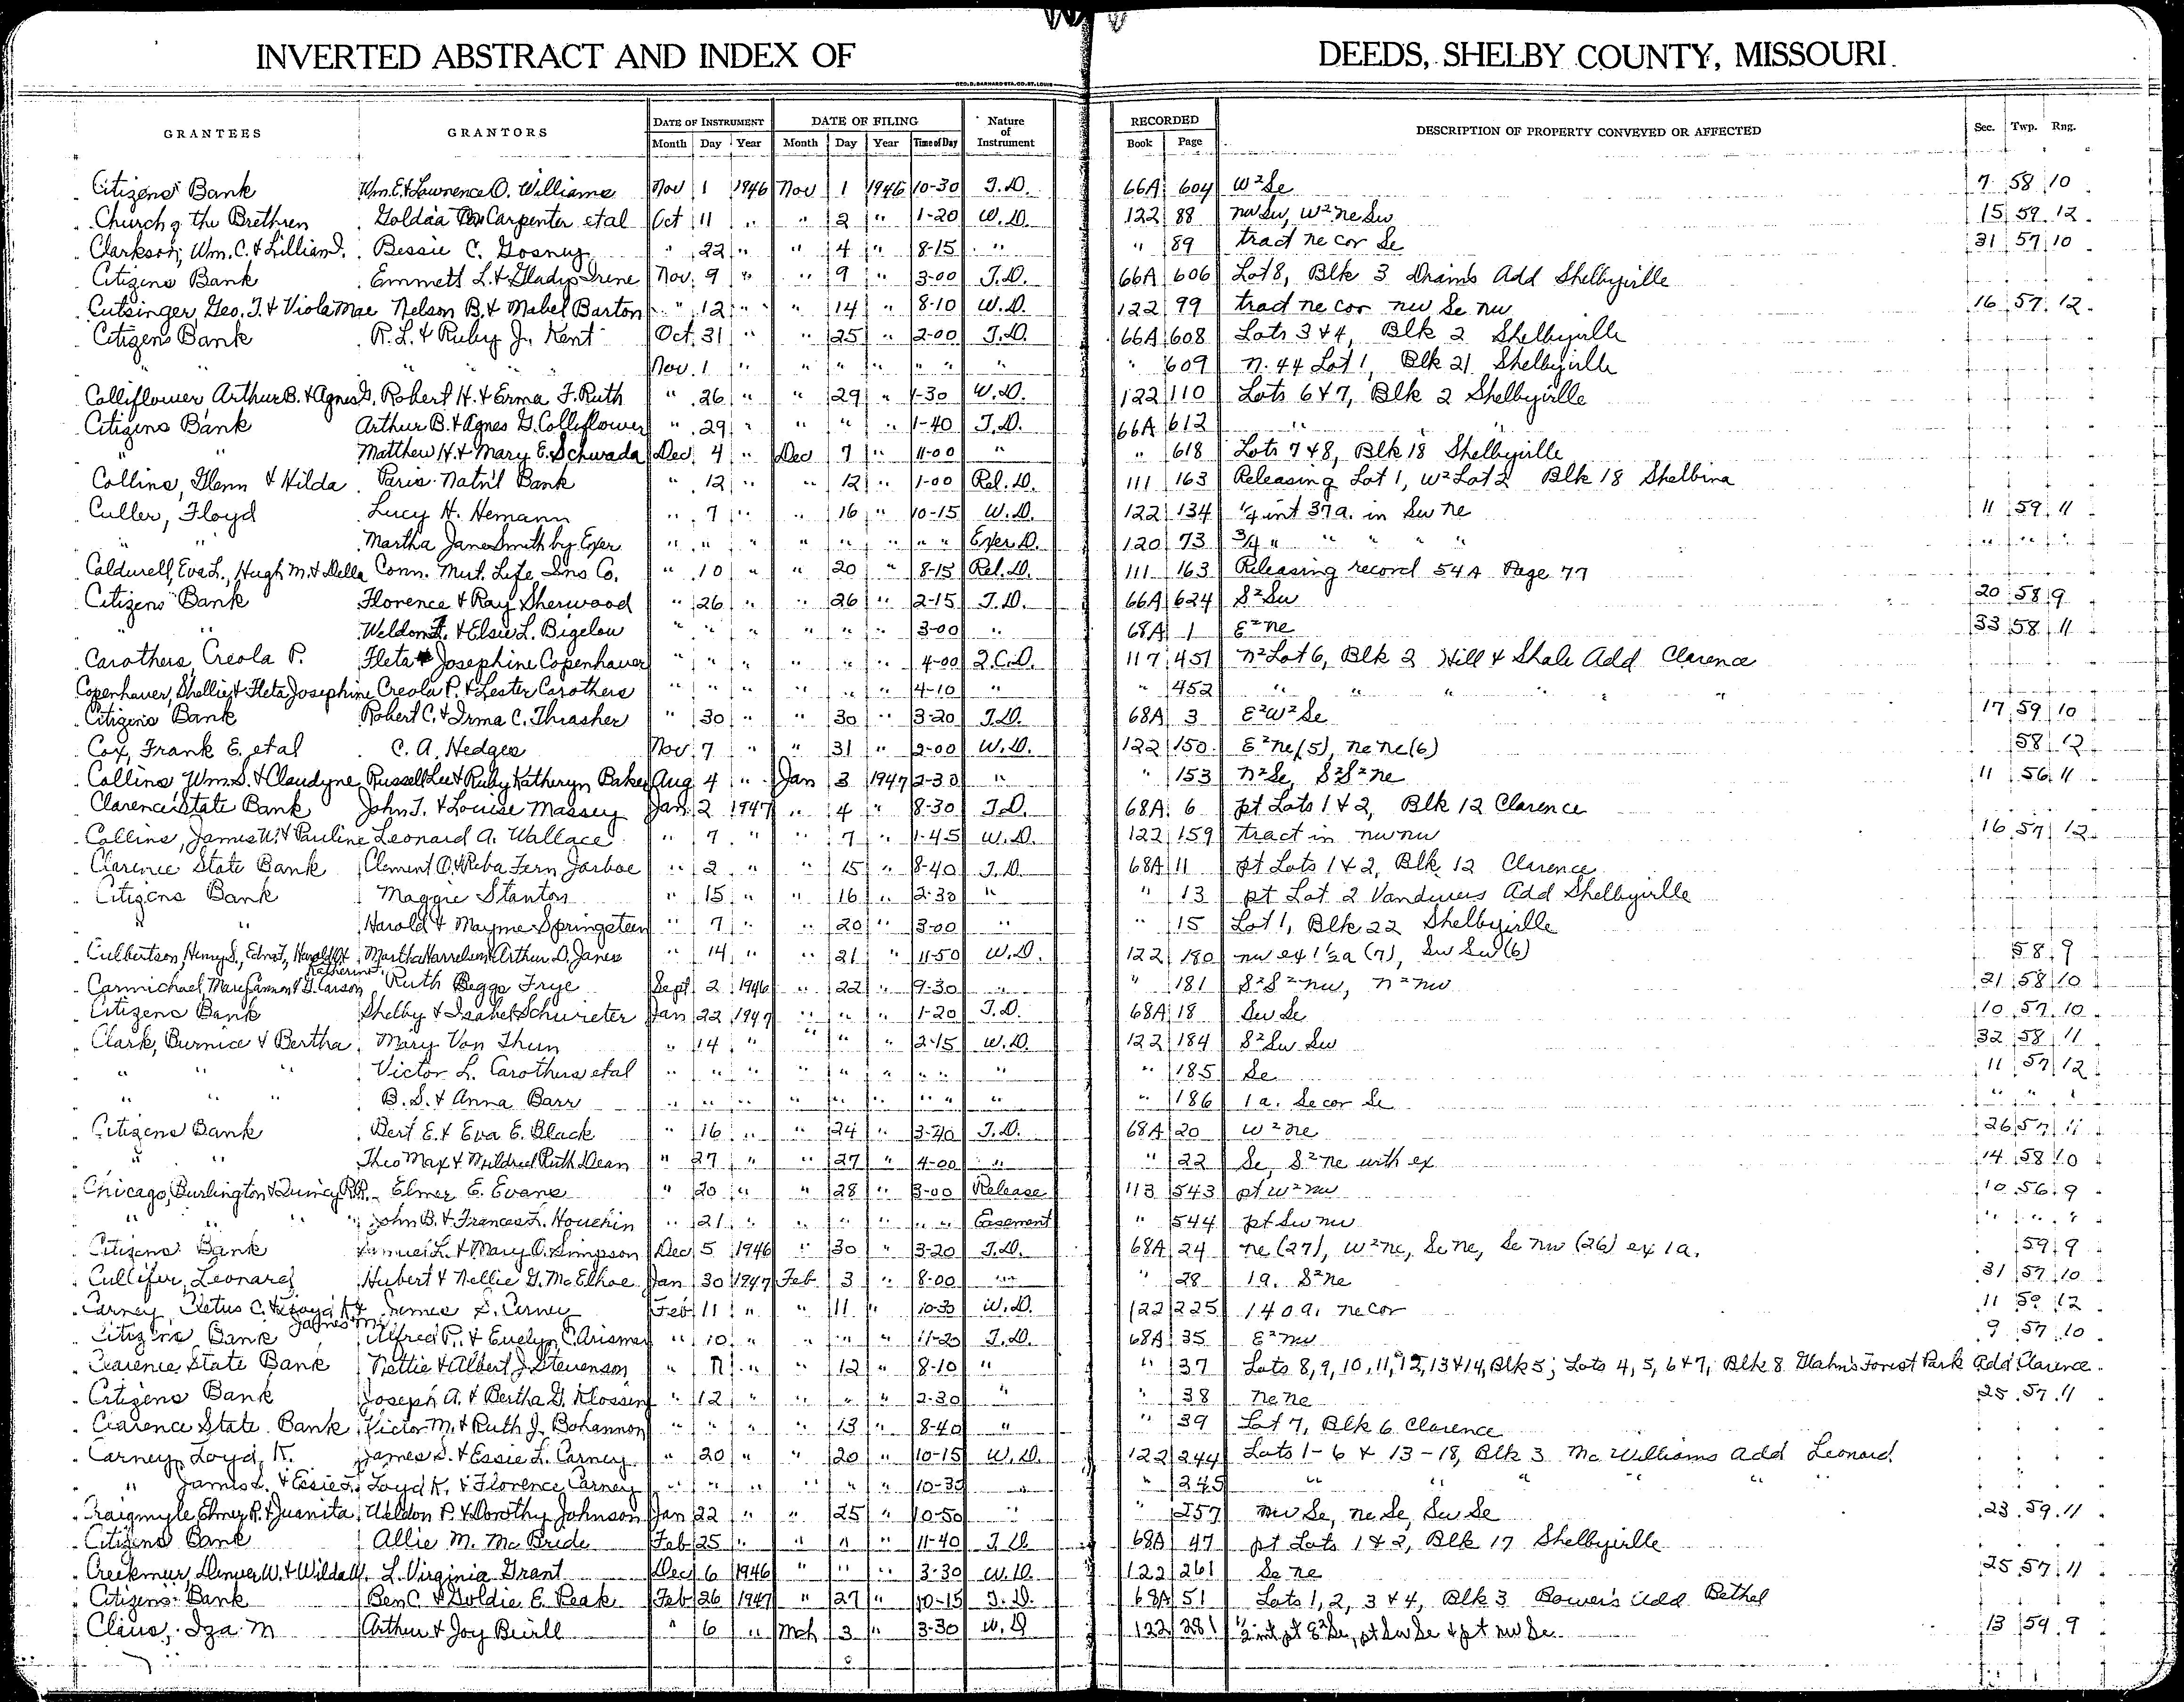 INVERTED ABSTRACT AND INDEX OF DEEDS, SHELBY COUNTY, MISSOURI
GEO. D. BARNARD STA. CO. ST. LOUIS
GRANTEES GRANTORS DATE OF INSTRUMENT DATE OF FILING Nature of Instrument RECORDED DESCRIPTION OF PROPERTY CONVEYED OR AFFECTED Sec. Twp. Rng.
Month Day Year Month Day Year Time of Day Book Page
Citizens Bank Wm. E. & Lawrence O. Williams Nov 1 1946 Nov 1 1946 10-30 T.D. 66A 604 W²Se 7 58 10
Church of the Brethren Goldia Carpenter etal Oct 11 " " 2 " 1-20 W.D. 122 88 nwSw, W²neSw 15 59 12
Clarkson, Wm. C. & Lillian J. Bessie C. Gosney " 22 " " 4 " 8-15 " " 89 tract ne cor Se 31 57 10
Citizens Bank Emmett L. & Gladys Irene Nov. 9 " " 9 " 3-00 T.D. 66A 606 Lot 8, Blk 3 Drains Add Shelbyville
Cutsinger, Geo. T. & Viola Mae Nelson B. & Mabel Barton " 12 " " 14 " 8-10 W.D. 122 99 tract ne cor nw Se nw 16 57 12
Citizens Bank R. L. & Ruby J. Kent Oct. 31 " " 25 " 2-00 T.D. 66A 608 Lots 3 & 4, Blk 2 Shelbyville
" " " " Nov. 1 " " " " " " " 609 n. 44 Lot 1, Blk 21 Shelbyville
Colliflower, Arthur B. & Agnes G. Robert H. & Erma F. Ruth " 26 " " 29 " 1-30 W.D. 122 110 Lots 6 & 7, Blk 2 Shelbyville
Citizens Bank Arthur B. & Agnes G. Colliflower " 29 " " " " 1-40 T.D. 66A 612 " "
" " Matthew H. & Mary E. Schwada Dec. 4 " Dec 7 " 11-00 " " 618 Lots 7 & 8, Blk 18 Shelbyville
Collins, Glenn & Hilda Paris Nat'l Bank " 12 " " 12 " 1-00 Rel. D. 111 163 Releasing Lot 1, W²Lot 2 Blk 18 Shelbina
Culler, Floyd Lucy H. Hemann " 7 " " 16 " 10-15 W.D. 122 134 ¼ int 37a. in Sw ne 11 59 11
" " Martha Jane Smith by Exer " " " " " " " " Exer D. 120 73 ¾ " " " " " " " "
Caldwell, Eva L., Hugh M. & Della Conn. Mut. Life Ins Co. " 10 " " 20 " 8-15 Rel. D. 111 163 Releasing record 54A Page 77
Citizens Bank Florence & Ray Sherwood " 26 " " 26 " 2-15 T.D. 66A 624 S²Sw 20 58 9
" " Weldon F. & Elsie L. Bigelow " " " " " " 3-00 " 68A 1 E²ne 33 58 11
Carothers, Creola P. Fleta Josephine Copenhaver " " " " " " 4-00 Q.C.D. 117 451 n²Lot 6, Blk 2 Hill & Shale Add Clarence
Copenhaver, Shellie & Fleta Josephine Creola P. & Lester Carothers " " " " " " 4-10 " " 452 " " " " "
Citizens Bank Robert C. & Irma C. Thrasher " 30 " " 30 " 3-20 T.D. 68A 3 E²W²Se 17 59 10
Cox, Frank E. etal C. A. Hedges Nov. 7 " " 31 " 2-00 W.D. 122 150 E²ne(5), ne ne(6) 58 12
Collins, Wm. S. & Claudyne Russell Lee & Ruby Katheryn Baker Aug 4 " Jan 3 1947 2-30 " " 153 n²Se, S²S²ne 11 56 11
Clarence State Bank John T. & Louise Massey Jan. 2 1947 " 4 " 8-30 T.D. 68A 6 pt Lots 1 & 2, Blk 12 Clarence
Collins, James W. & Pauline Leonard A. Wallace " 7 " " 7 " 1-45 W.D. 122 159 tract in nw nw 16 57 12
Clarence State Bank Clement O. & Reba Fern Jarboe " 2 " " 15 " 8-40 T.D. 68A 11 pt Lots 1 & 2, Blk 12 Clarence
Citizens Bank Maggie Stanton " 15 " " 16 " 2-30 " " 13 pt Lot 2 Vandivers Add Shelbyville
" " Harold & Mayme Springsteen " 7 " " 20 " 3-00 " " 15 Lot 1, Blk 22 Shelbyville
Culbertson, Henry S., Edna F., Harold H. & Katherine Martha Harrelson & Arthur D. Janes " 14 " " 21 " 11-50 W.D. 122 180 nw ex 1½a (7), Sw Sw (6) 58 9
Carmichael, Mary Gannon & G. Carson Ruth Beggs Frye Sept 2 1946 " 22 " 9-30 " " 181 S²S²nw, n²nw 21 58 10
Citizens Bank Shelby & Isabel Schwieter Jan 22 1947 " " " 1-20 T.D. 68A 18 Sw Se 10 57 10
Clark, Burnice & Bertha Mary Von Thun " 14 " " " " 2-15 W.D. 122 184 S²Sw Sw 32 58 11
" " " Victor L. Carothers etal " " " " " " " " " " 185 Se 11 57 12
" " " B. S. & Anna Barr " " " " " " " " " " 186 1a. Se cor Se " " "
Citizens Bank Bert E. & Eva E. Black " 16 " " 24 " 3-40 T.D. 68A 20 W²ne 26 57 11
" " Theo Max & Mildred Ruth Dean " 27 " " 27 " 4-00 " " 22 Se, S²ne with ex 14 58 10
Chicago, Burlington & Quincy R.R. Elmer E. Evans " 20 " " 28 " 3-00 Release 113 543 pt W²nw 10 56 9
" " " " John B. & Frances L. Houchin " 21 " " " " " " Easement " 544 pt Sw nw " " "
Citizens Bank Samuel L. & Mary O. Simpson Dec 5 1946 " 30 " 3-20 T.D. 68A 24 ne (27), W²ne, Se ne, Se nw (26) ex 1a. 59 9
Cullifer, Leonard Hubert & Nellie G. McElhoe Jan 30 1947 Feb 3 " 8-00 " " 28 1a. S²ne 31 57 10
Carney Cletus C. & Loyd K. & James S. Carney Feb 11 " " 11 " 10-30 W.D. 122 225 140a. ne cor 11 59 12
Citizens Bank Alfred P. & Evelyn C. Arisman " 10 " " " " 11-20 T.D. 68A 35 E²nw 9 57 10
Clarence State Bank Nettie & Albert J. Stevenson " 11 " " 12 " 8-10 " " 37 Lots 8, 9, 10, 11, 12, 13 & 14, Blk 5; Lots 4, 5, 6 & 7, Blk 8 Glahn's Forest Park Add Clarence
Citizens Bank Joseph A. & Bertha G. Klossing " 12 " " " " 2-30 " " 38 ne ne 25 57 11
Clarence State Bank Victor M. & Ruth J. Bohannon " " " " 13 " 8-40 " " 39 Lot 7, Blk 6 Clarence
Carney, Loyd K. James S. & Essie L. Carney " 20 " " 20 " 10-15 W.D. 122 244 Lots 1-6 & 13-18, Blk 3 McWilliams Add Leonard
" James S. & Essie L. Loyd K. & Florence Carney " " " " " " 10-30 " " 245 " " " " "
Craigmyle, Elmer R. & Juanita Weldon P. & Dorothy Johnson Jan 22 " " 25 " 10-50 " " 257 nw Se, ne Se, Sw Se 23 59 11
Citizens Bank Allie M. McBride Feb 25 " " " " 11-40 T.D. 68A 47 pt Lots 1 & 2, Blk 17 Shelbyville
Creekmur, Denver W. & Wilda L. Virginia Grant Dec 6 1946 " " " 3-30 W.D. 122 261 Se ne 25 57 11
Citizens Bank Ben C. & Goldie E. Peak Feb 26 1947 " 27 " 10-15 T.D. 68A 51 Lots 1, 2, 3 & 4, Blk 3 Bower's Add Bethel
Claus, Iza M Arthur & Joy Buill " 6 " Mch 3 " 3-30 W.D 122 281 ½ int pt E²Se, pt Sw Se & pt nw Se 13 59 9